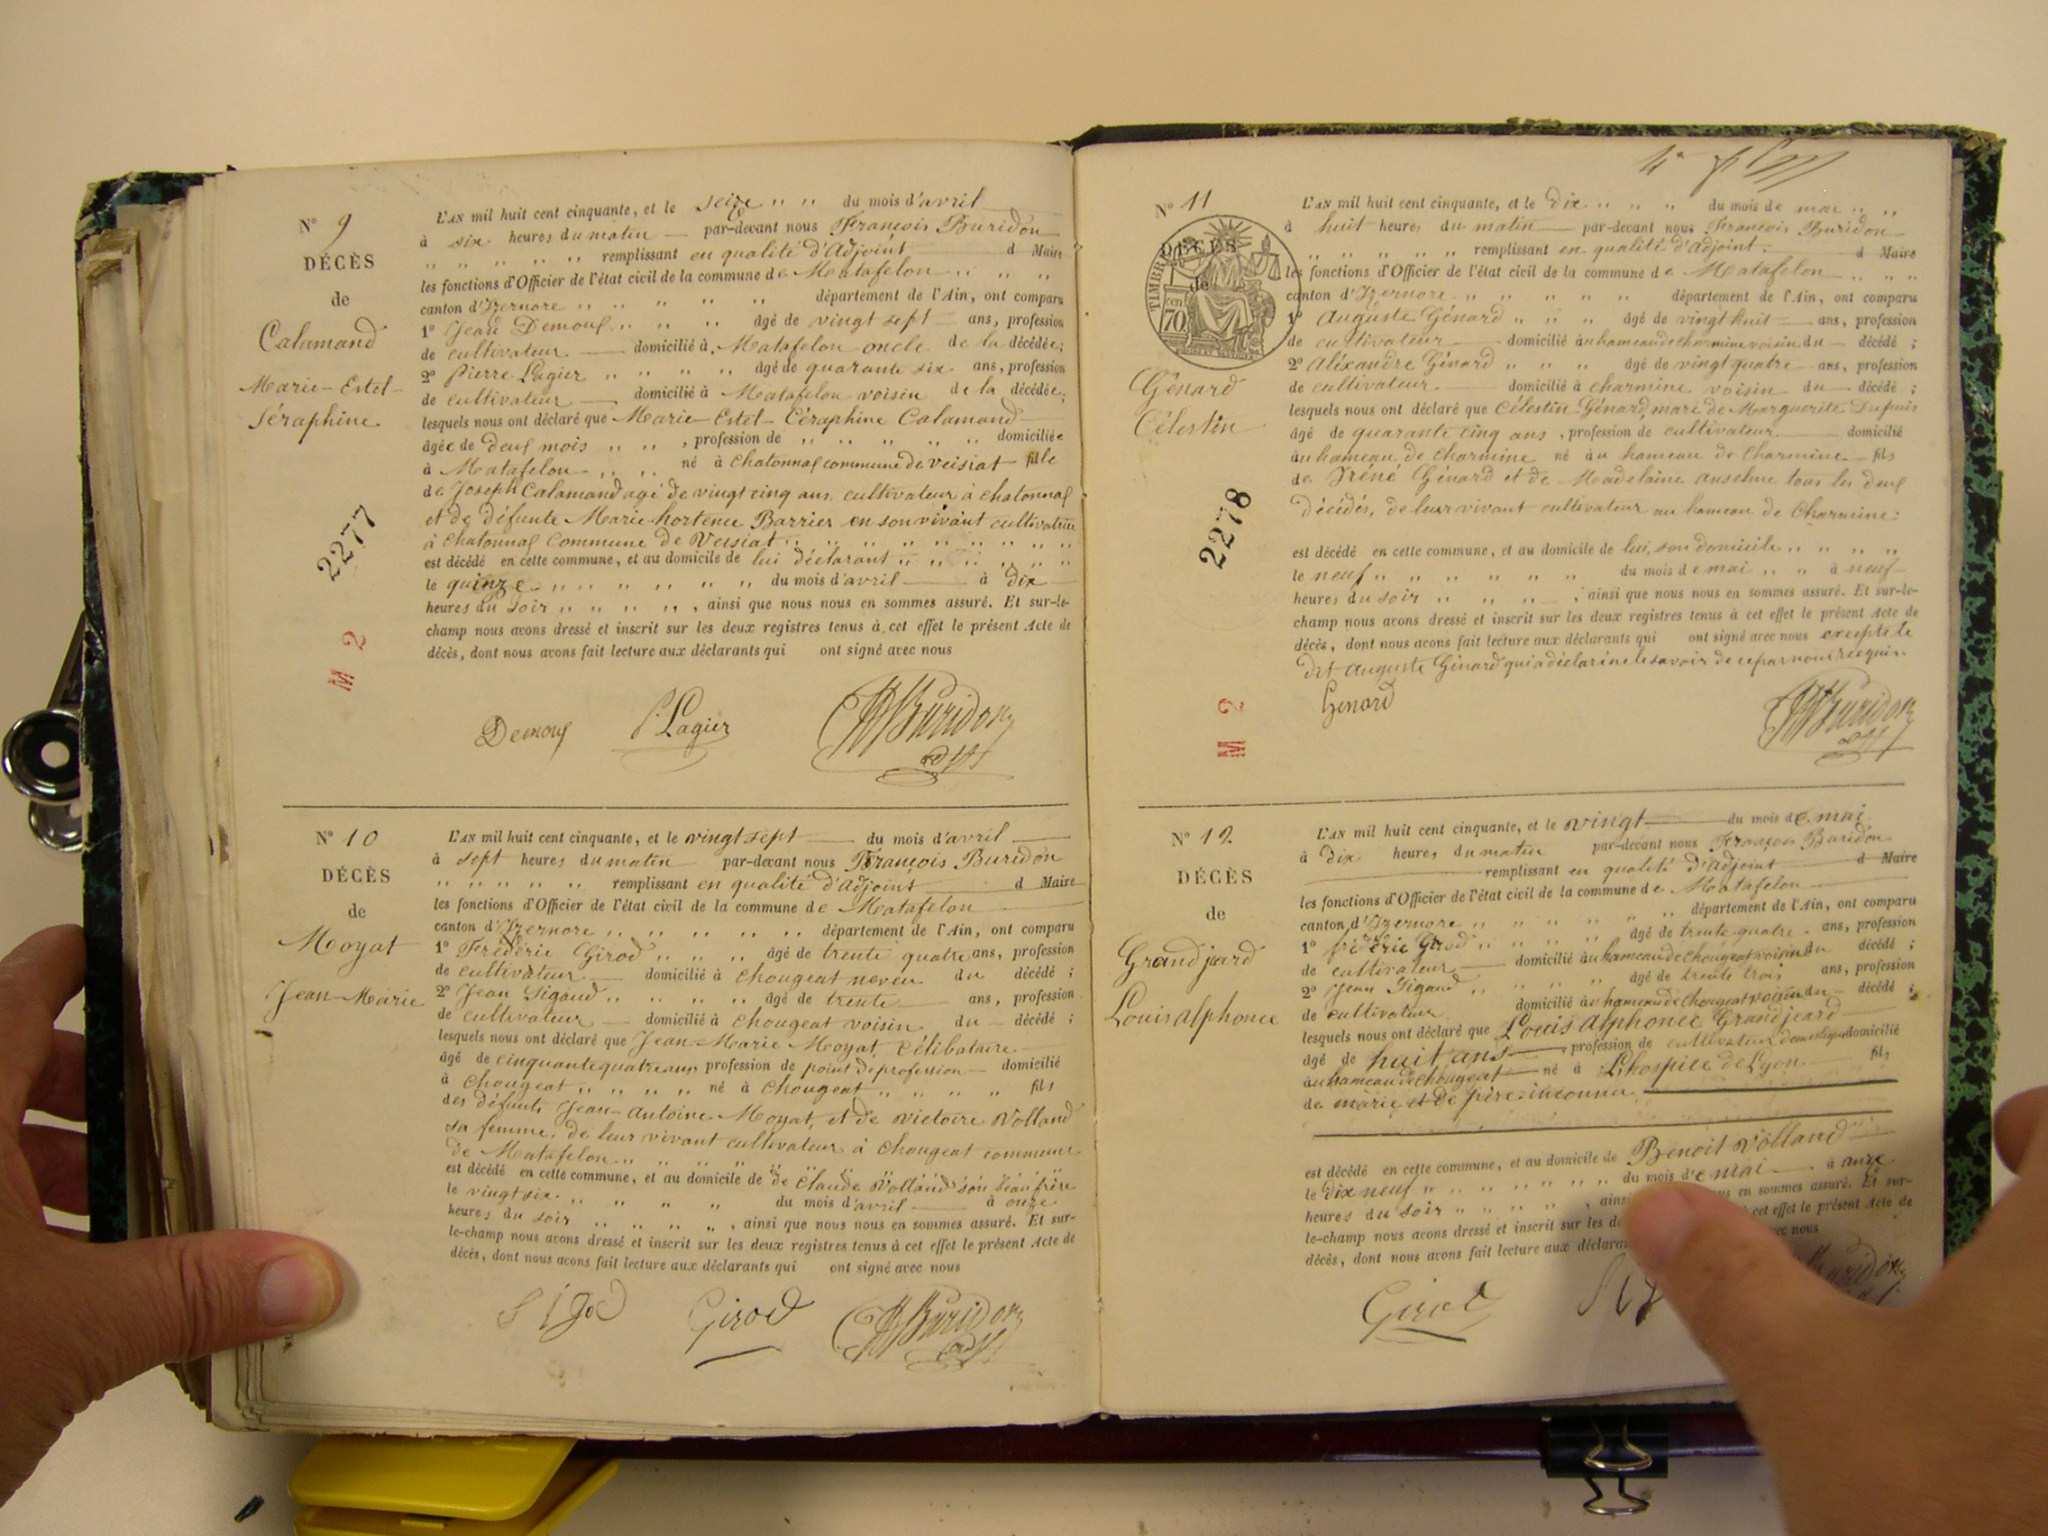 N° 9
DÉCÈS
de
Calamand
Marie-Estel-
Séraphine
2277
M 2
L'AN mil huit cent cinquante, et le seize " " du mois d'avril
à six heures du matin par-devant nous François Buridon
" " " " " remplissant en qualité d'Adjoint d Maire
les fonctions d'Officier de l'état civil de la commune de Matafelon " " "
canton d'Izernore " " " " " département de l'Ain, ont comparu
1° Jean Demouf " " " " âgé de vingt sept ans, profession
de cultivateur domicilié à Matafelon oncle de la décédée;
2° Pierre Lagier " " " " âgé de quarante six ans, profession
de cultivateur domicilié à Matafelon voisin de la décédée;
lesquels nous ont déclaré que Marie-Estel-Céraphine Calamand
âgée de deux mois " " , profession de " " " " " domiciliée
à Matafelon " " né à chatonnas commune de veisiat fille
de Joseph Calamand agé de vingt cinq ans cultivateur à chatonnas
et de défunte Marie hortence Barrier en son vivant cultivatrice
à chatonnas Commune de Veisiat " " " " " " " "
est décédé en cette commune, et au domicile de lui déclarant " " " " "
le quinze " " " " " " du mois d'avril à dix
heures du soir " " " " , ainsi que nous nous en sommes assuré. Et sur-le-
champ nous avons dressé et inscrit sur les deux registres tenus à cet effet le présent Acte de
décès, dont nous avons fait lecture aux déclarants qui ont signé avec nous
Demouf P. Lagier Buridon
adjt
N° 10
DÉCÈS
de
Moyat
Jean-Marie
L'AN mil huit cent cinquante, et le vingt sept du mois d'avril
à sept heures du matin par-devant nous François Buridon
" " " " " remplissant en qualité d'Adjoint d Maire
les fonctions d'Officier de l'état civil de la commune de Matafelon
canton d'Izernore " " " " " " département de l'Ain, ont comparu
1° Frédéric Girod " " " " âgé de trente quatre ans, profession
de cultivateur domicilié à chougeat neveu du décédé;
2° Jean Sigaud " " " " " âgé de trente ans, profession
de cultivateur domicilié à chougeat voisin du décédé;
lesquels nous ont déclaré que Jean-Marie Moyat, Célibataire
âgé de cinquante quatre ans, profession de point de profession domicilié
à Chougeat " " " " " né à Chougeat " " " " " fils
des défunts Jean-Antoine Moyat, et de victoire Volland
sa femme, de leur vivant cultivateur à Chougeat commune
de Matafelon " " " " " "
est décédé en cette commune, et au domicile de de Claude Volland son beau frère
le vingt six " " " " du mois d'avril à onze
heures du soir " " " " " , ainsi que nous nous en sommes assuré. Et sur-
le-champ nous avons dressé et inscrit sur les deux registres tenus à cet effet le présent Acte de
décès, dont nous avons fait lecture aux déclarants qui ont signé avec nous
Girod Buridon
adjt
N° 11
DÉCÈS
de
TIMBRE
70
Génard
Célestin
2278
M 2
L'AN mil huit cent cinquante, et le dix " " " du mois de mai " "
à huit heures du matin par-devant nous François Buridon
" " " " " remplissant en qualité d'Adjoint d Maire
les fonctions d'Officier de l'état civil de la commune de Matafelon " " "
canton d'Izernore " " " " " département de l'Ain, ont comparu
1° Auguste Génard " " " âgé de vingt huit ans, profession
de cultivateur domicilié au hameau de charmine voisin du décédé;
2° Aléxandre Génard " " " âgé de vingt quatre ans, profession
de cultivateur domicilié à charmine voisin du décédé;
lesquels nous ont déclaré que Célestin Génard, mari de Marguerite Dupuis
âgé de quarante cinq ans, profession de cultivateur domicilié
au hameau de charmine né au hameau de Charmine fils
de Iréné Génard et de Madelaine anselme tous les deux
décédés, de leur vivant cultivateur au hameau de Charmine:
est décédé en cette commune, et au domicile de lui, son domicile " " " "
le neuf " " " " " " du mois de mai " " à neuf
heures du soir " " " ; ainsi que nous nous en sommes assuré. Et sur-le-
champ nous avons dressé et inscrit sur les deux registres tenus à cet effet le présent Acte de
décès, dont nous avons fait lecture aux déclarants qui ont signé avec nous excepté le
dit Auguste Génard qui a déclaré ne le savoir de ce par nous requis.
Génard Buridon
adjt
N° 12
DÉCÈS
de
Grandjeard
Louis alphonce
L'AN mil huit cent cinquante, et le vingt du mois de mai
à dix heures du matin par-devant nous François Buridon
remplissant en qualité d'Adjoint d Maire
les fonctions d'Officier de l'état civil de la commune de Matafelon
canton d'Izernore " " " " " " département de l'Ain, ont comparu
1° Girod " " " " " âgé de trente quatre ans, profession
de cultivateur domicilié au hameau de chougeat voisin du décédé;
2° Jean Sigaud " " " " " âgé de trente trois ans, profession
de cultivateur domicilié au hameau de Chougeat voisin du décédé;
lesquels nous ont déclaré que Louis Alphonce Grandjeard
âgé de huit ans, profession de cultivateur domestique domicilié
au hameau de Chougeat né à L'hospice de Lyon fils
de marie et de père inconnu
est décédé en cette commune, et au domicile de Benoit Volland
le dix neuf " " " " " " " du mois de mai à onze
heures du soir " " " " " , ainsi us en sommes assuré. Et sur-
le-champ nous avons dressé et inscrit sur les de cet effet le présent Acte de
décès, dont nous avons fait lecture aux déclara ec nous
Girod Buridon